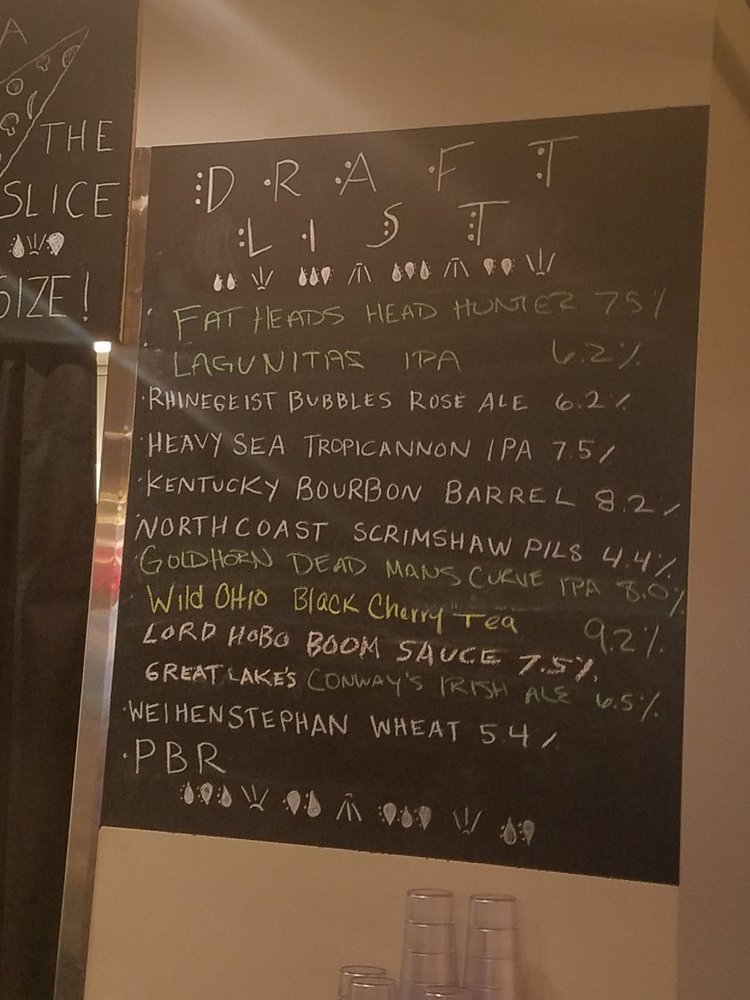 A
THE
SLICE
SIZE!
DRAFT
LIST
FAT HEADS HEAD HUNTER 75%
LAGUNITAS IPA 6.2%
·RHINEGEIST BUBBLES ROSE ALE 6.2%
·HEAVY SEA TROPICANNON IPA 7.5%
·KENTUCKY BOURBON BARREL 8.2%
·NORTH COAST SCRIMSHAW PILS 4.4%
·GOLDHORN DEAD MANS CURVE IPA 8.0%
Wild OHIO Black Cherry Tea 9.2%
LORD HOBO BOOM SAUCE 7.5%
GREAT LAKE'S CONWAY'S IRISH ALE 6.5%
·WEIHENSTEPHAN WHEAT 5.4%
·PBR